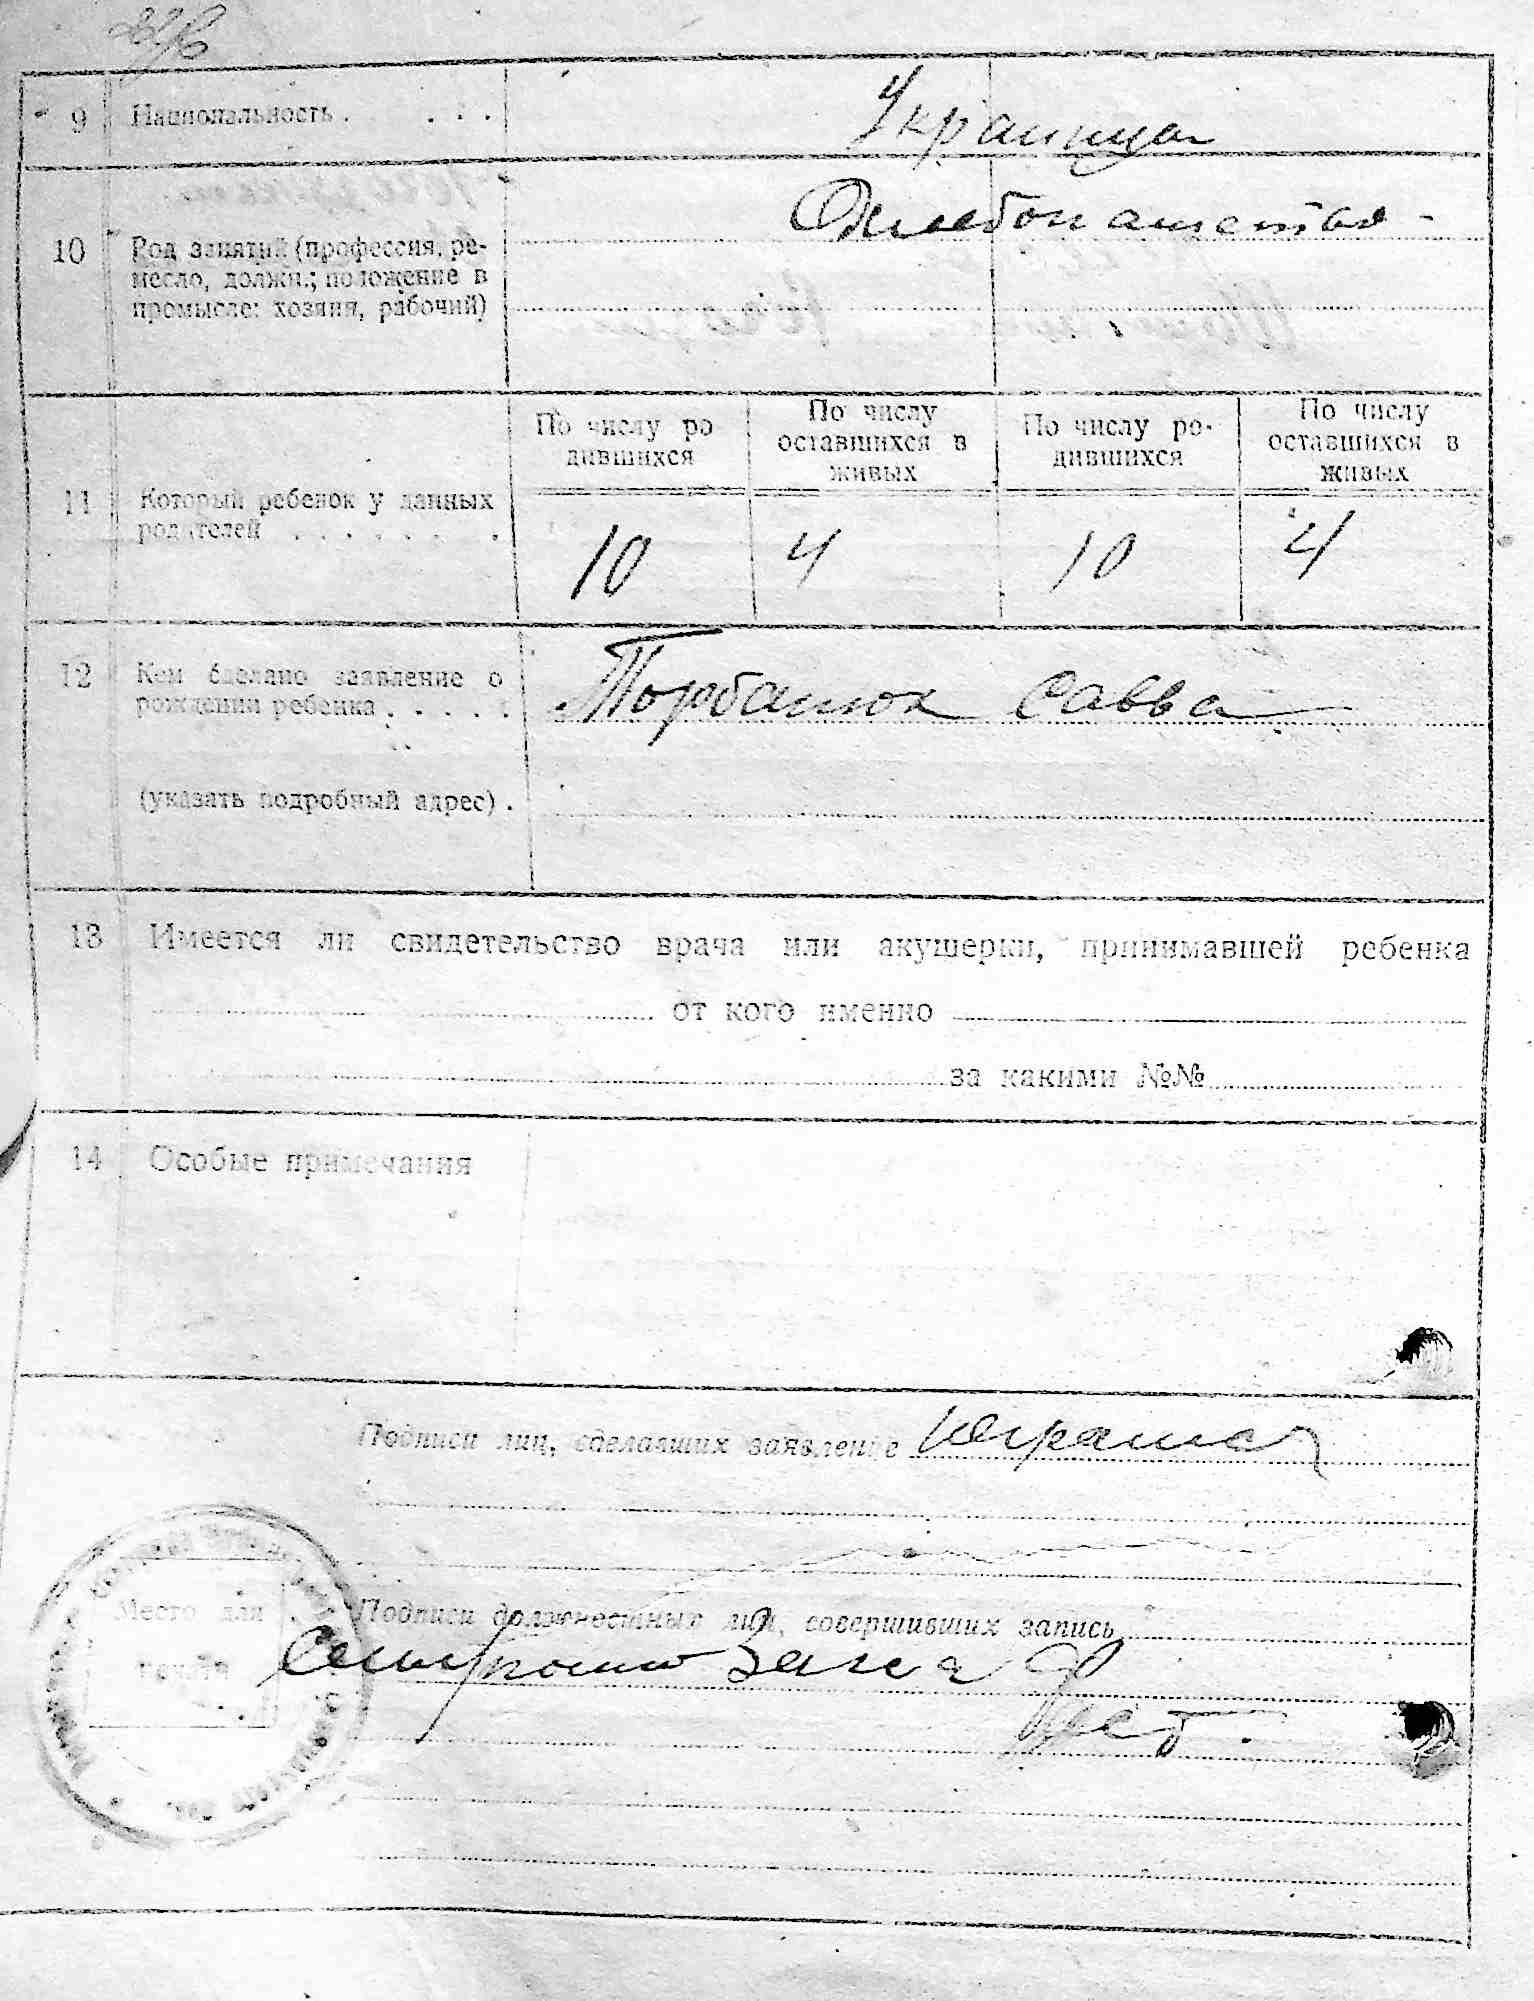 9 Национальность . . . .
Украинцы
10 Род занятий (профессия, ре-
месло, должн.; положение в
промысле: хозяин, рабочий)
Хлебопашество -
По числу ро
дившихся
По числу
оставшихся в
живых
По числу ро-
дившихся
По числу
оставшихся в
живых
11 Который ребенок у данных
родителей . . . . . . .
10 4 10 4
12 Кем сделано заявление о
рождении ребенка . . . . .
Торбанюк Савва
(указать подробный адрес) .
13 Имеется ли свидетельство врача или акушерки, принимавшей ребенка
от кого именно
за какими №№
14 Особые примечания
Подписи лиц, сделавших заявление
Подписи должностных лиц, совершивших запись
Место для
печати